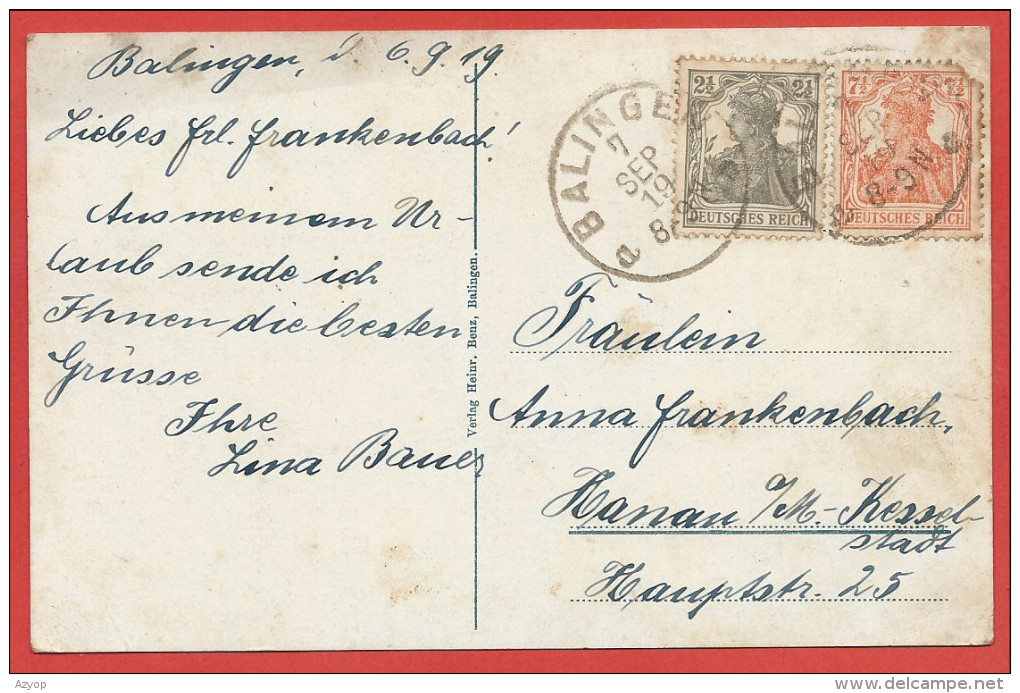 Balingen, d. 6.9.19.
Liebes Frl. Frankenbach!
Aus meinem Ur-
laub sende ich
Ihnen die besten
Grüsse
Ihre
Lina Bauer
Verlag Heinr. Benz, Balingen.
2½ 2½
DEUTSCHES REICH
7½ 7½
DEUTSCHES REICH
BALINGEN
7
SEP
19
8-9 N
a
SEP
19
8-9 N
a
Fräulein
Anna Frankenbach,
Hanau a/M-Kessel-
stadt
Hauptstr. 25
Azyop
delcampe.net